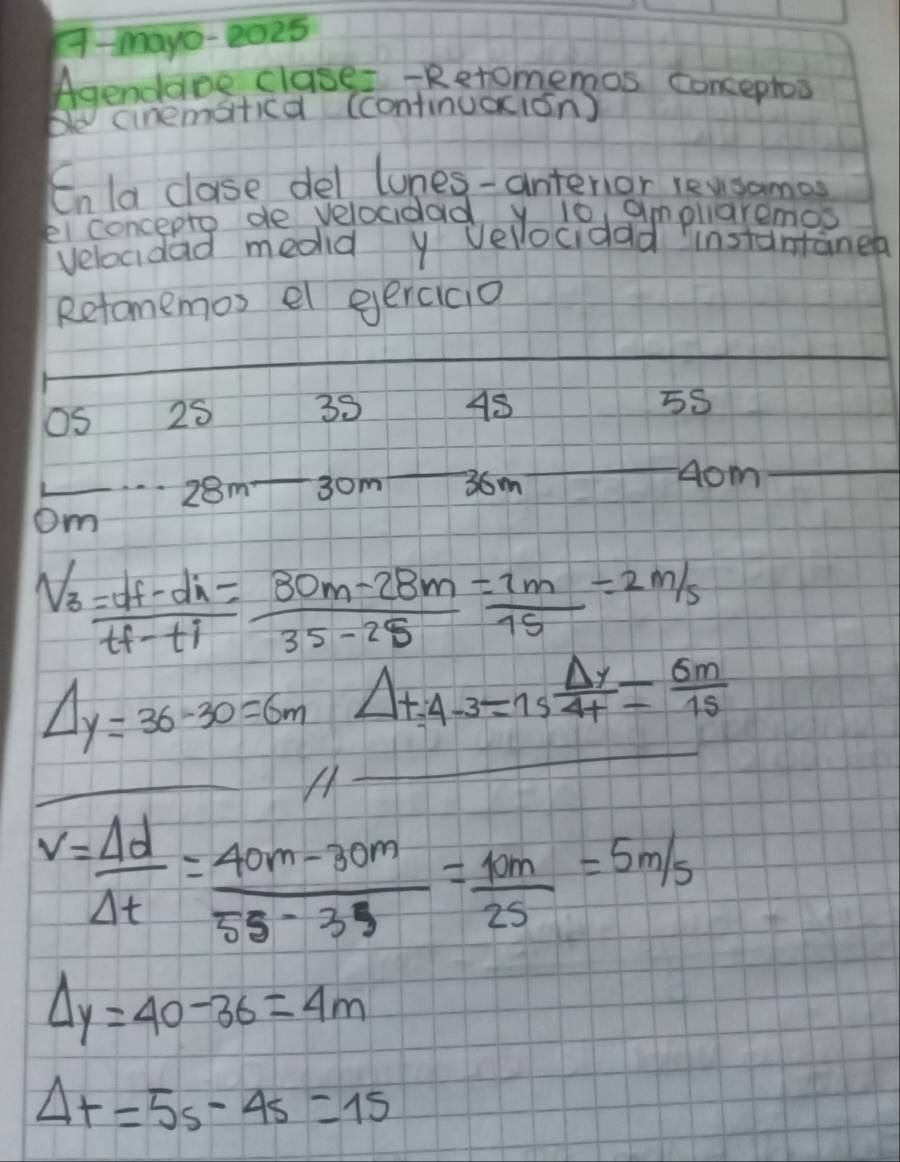 7-mayo-2025
Agendade clase= -Retomemos conceptos
de cinemática (continuación)
En la clase del lunes-anterior revisamos
el concepto de velocidad y lo ampliaremos
velocidad media y vellocidad instantánea
Retomemos el ejercicio
0s 2s 3s 4s 5s
0m ... 28m 30m 36m 40m
V3 = df-di / tf-ti = 30m-28m / 3s-2s = 2m / 1s = 2m/s
Δy=36-30=6m Δt=4-3=1s Δy/Δt = 6m/1s
//
V=Δd/Δt = 40m-30m / 5s-3s = 10m / 2s = 5m/s
Δy=40-36=4m
Δt=5s-4s=1s